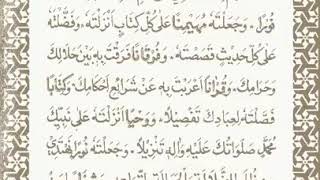 نُورًا . وَجَعَلْتَهُ مُهَيْمِنًا عَلَى كُلِّ كِتَابٍ أَنْزَلْتَهُ . وَفَضَّلْتَهُ
عَلَى كُلِّ حَدِيثٍ قَصَصْتَهُ . وَفُرْقَانًا فَرَقْتَ بِهِ بَيْنَ حَلَالِكَ
وَحَرَامِكَ . وَقُرْاٰنًا أَعْرَبْتَ بِهِ عَنْ شَرَائِعِ أَحْكَامِكَ . وَكِتَابًا
فَصَّلْتَهُ لِعِبَادِكَ تَفْصِيلًا . وَوَحْيًا أَنْزَلْتَهُ عَلَى نَبِيِّكَ
مُحَمَّدٍ صَلَوَاتُكَ عَلَيْهِ وَاٰلِهِ تَنْزِيلًا . وَجَعَلْتَهُ نُورًا نَهْتَدِي